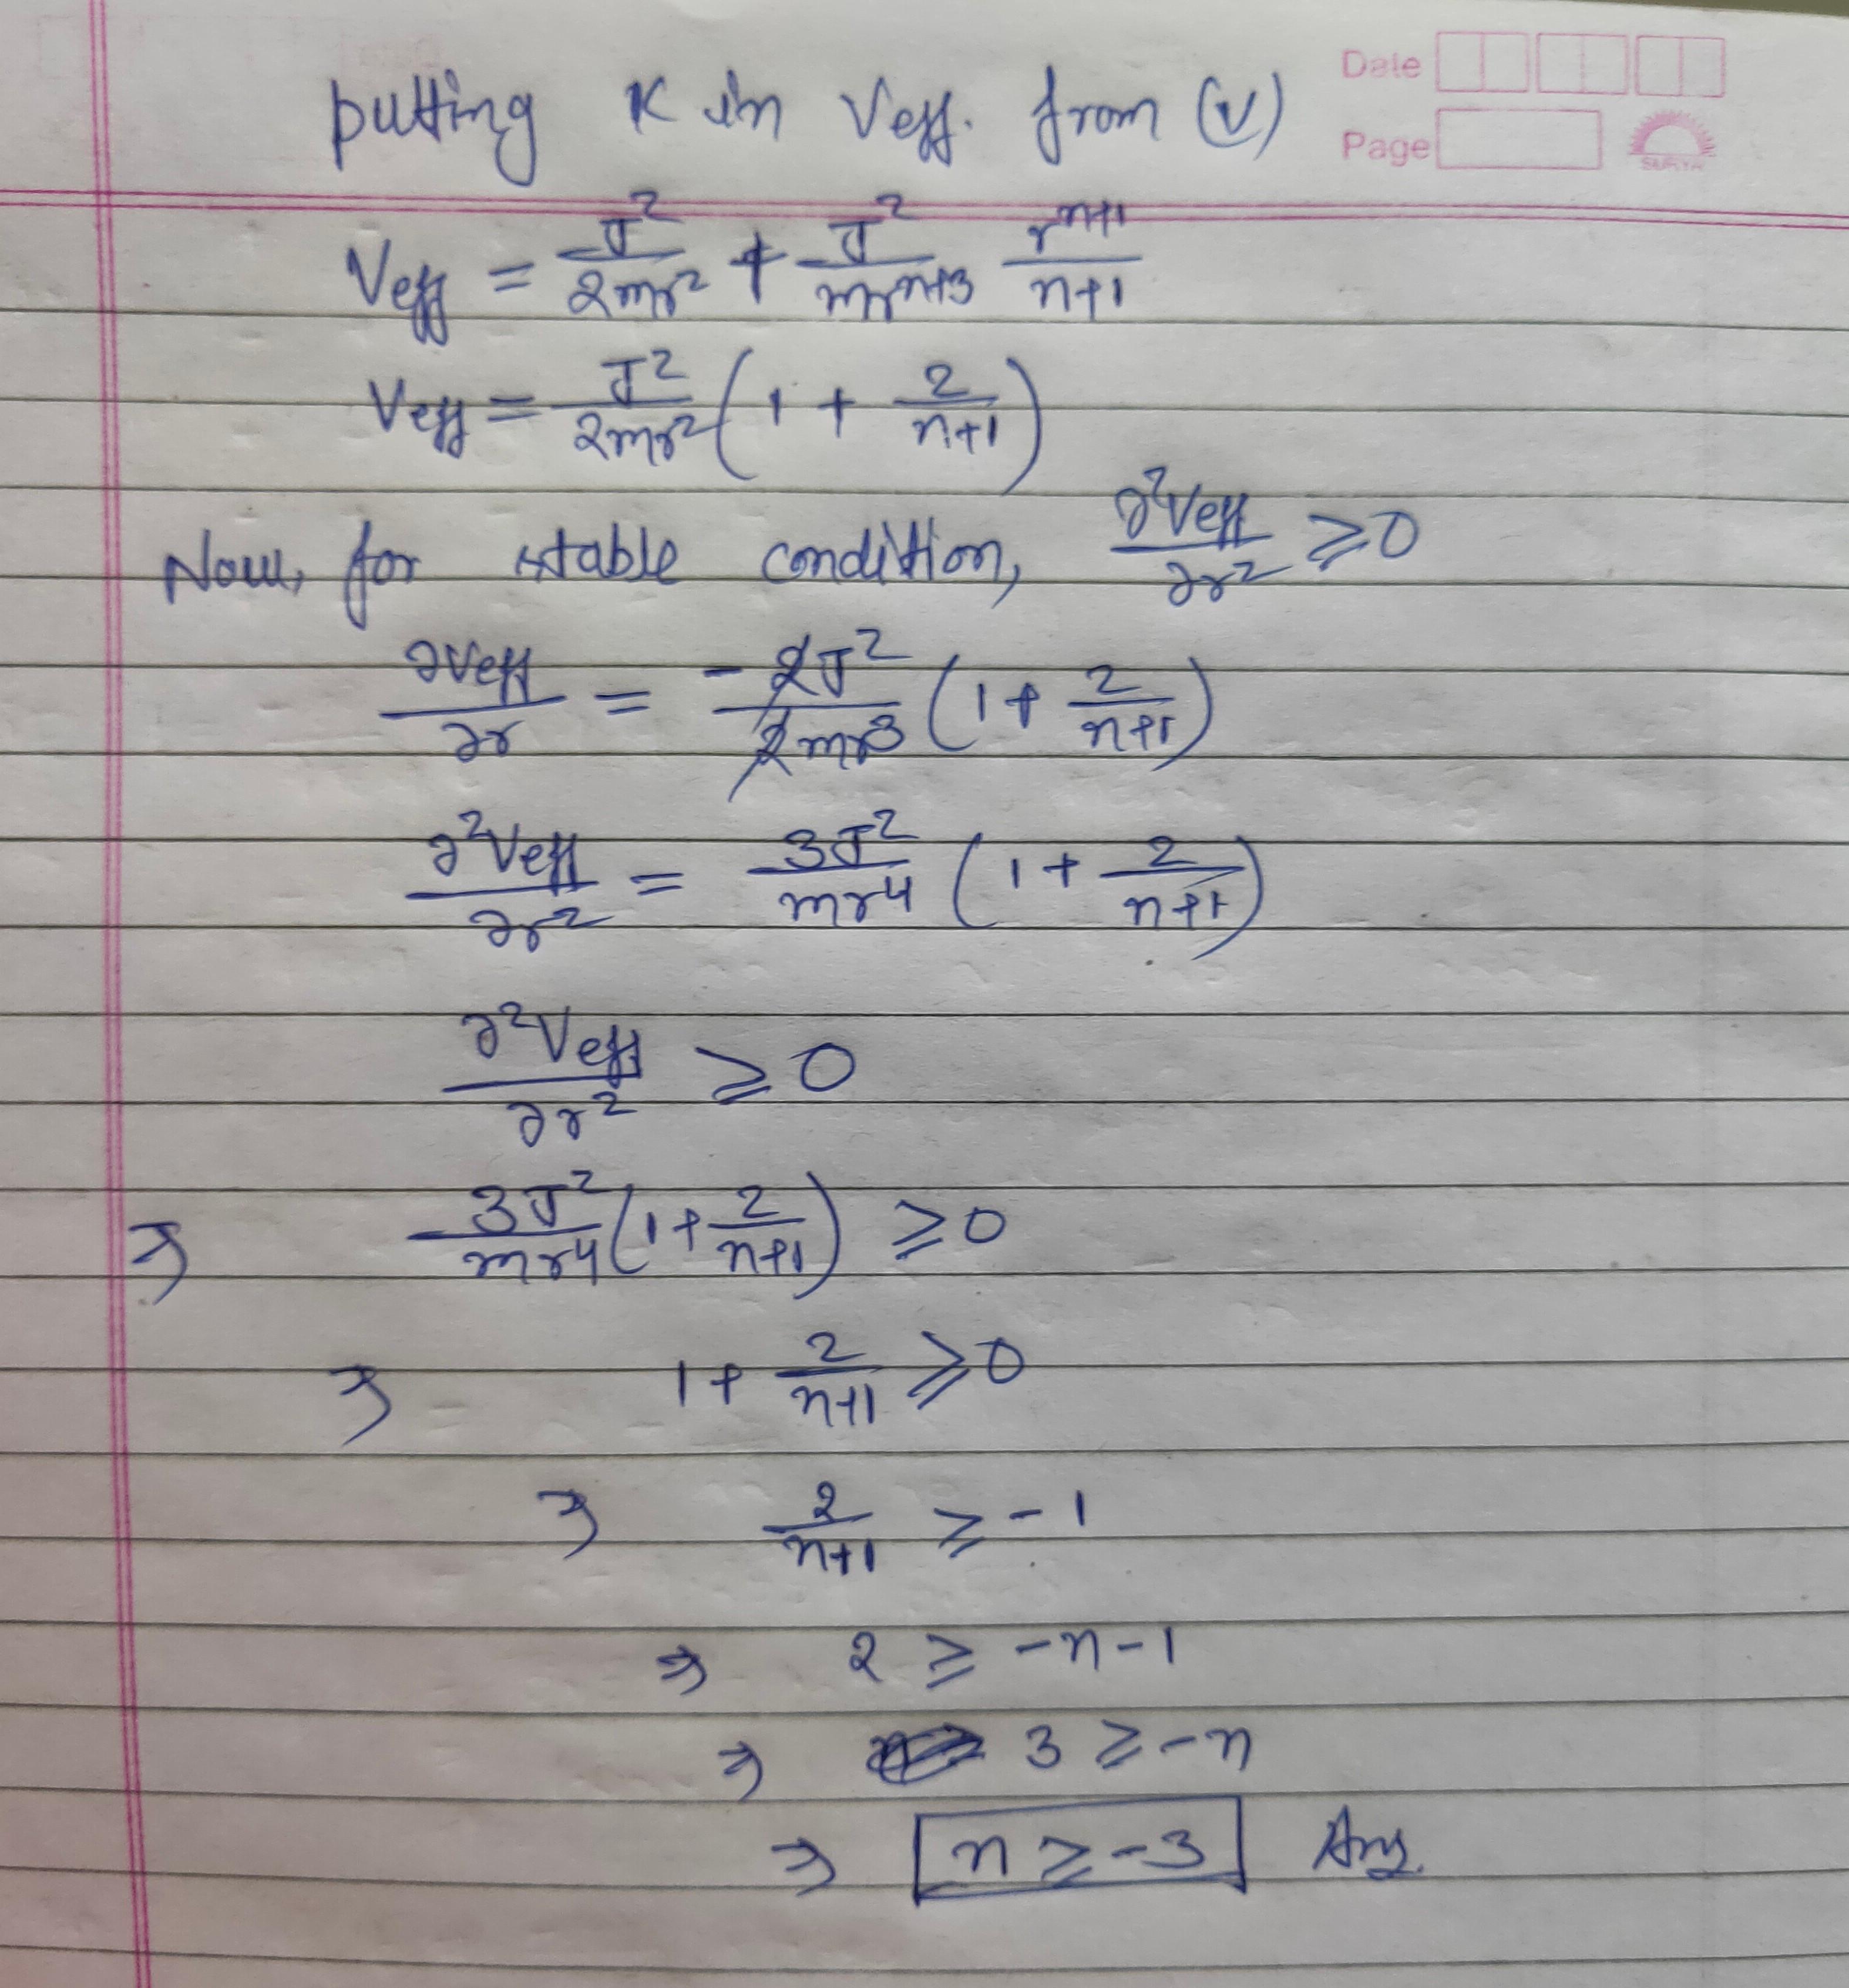 Date
Page
SURYA
putting K in Veff. from (v)
Veff = J²/2mr² + J²/mrⁿ⁺³ rⁿ⁺¹/n+1
Veff = J²/2mr² (1 + 2/n+1)
Now, for stable condition, ∂²Veff/∂r² ≥ 0
∂Veff/∂r = -2J²/2mr³ (1 + 2/n+1)
∂²Veff/∂r² = 3J²/mr⁴ (1 + 2/n+1)
∂²Veff/∂r² ≥ 0
⇒ 3J²/mr⁴ (1 + 2/n+1) ≥ 0
⇒ 1 + 2/n+1 ≥ 0
⇒ 2/n+1 ≥ -1
⇒ 2 ≥ -n-1
⇒ 3 ≥ -n
⇒ n ≥ -3 Ans.